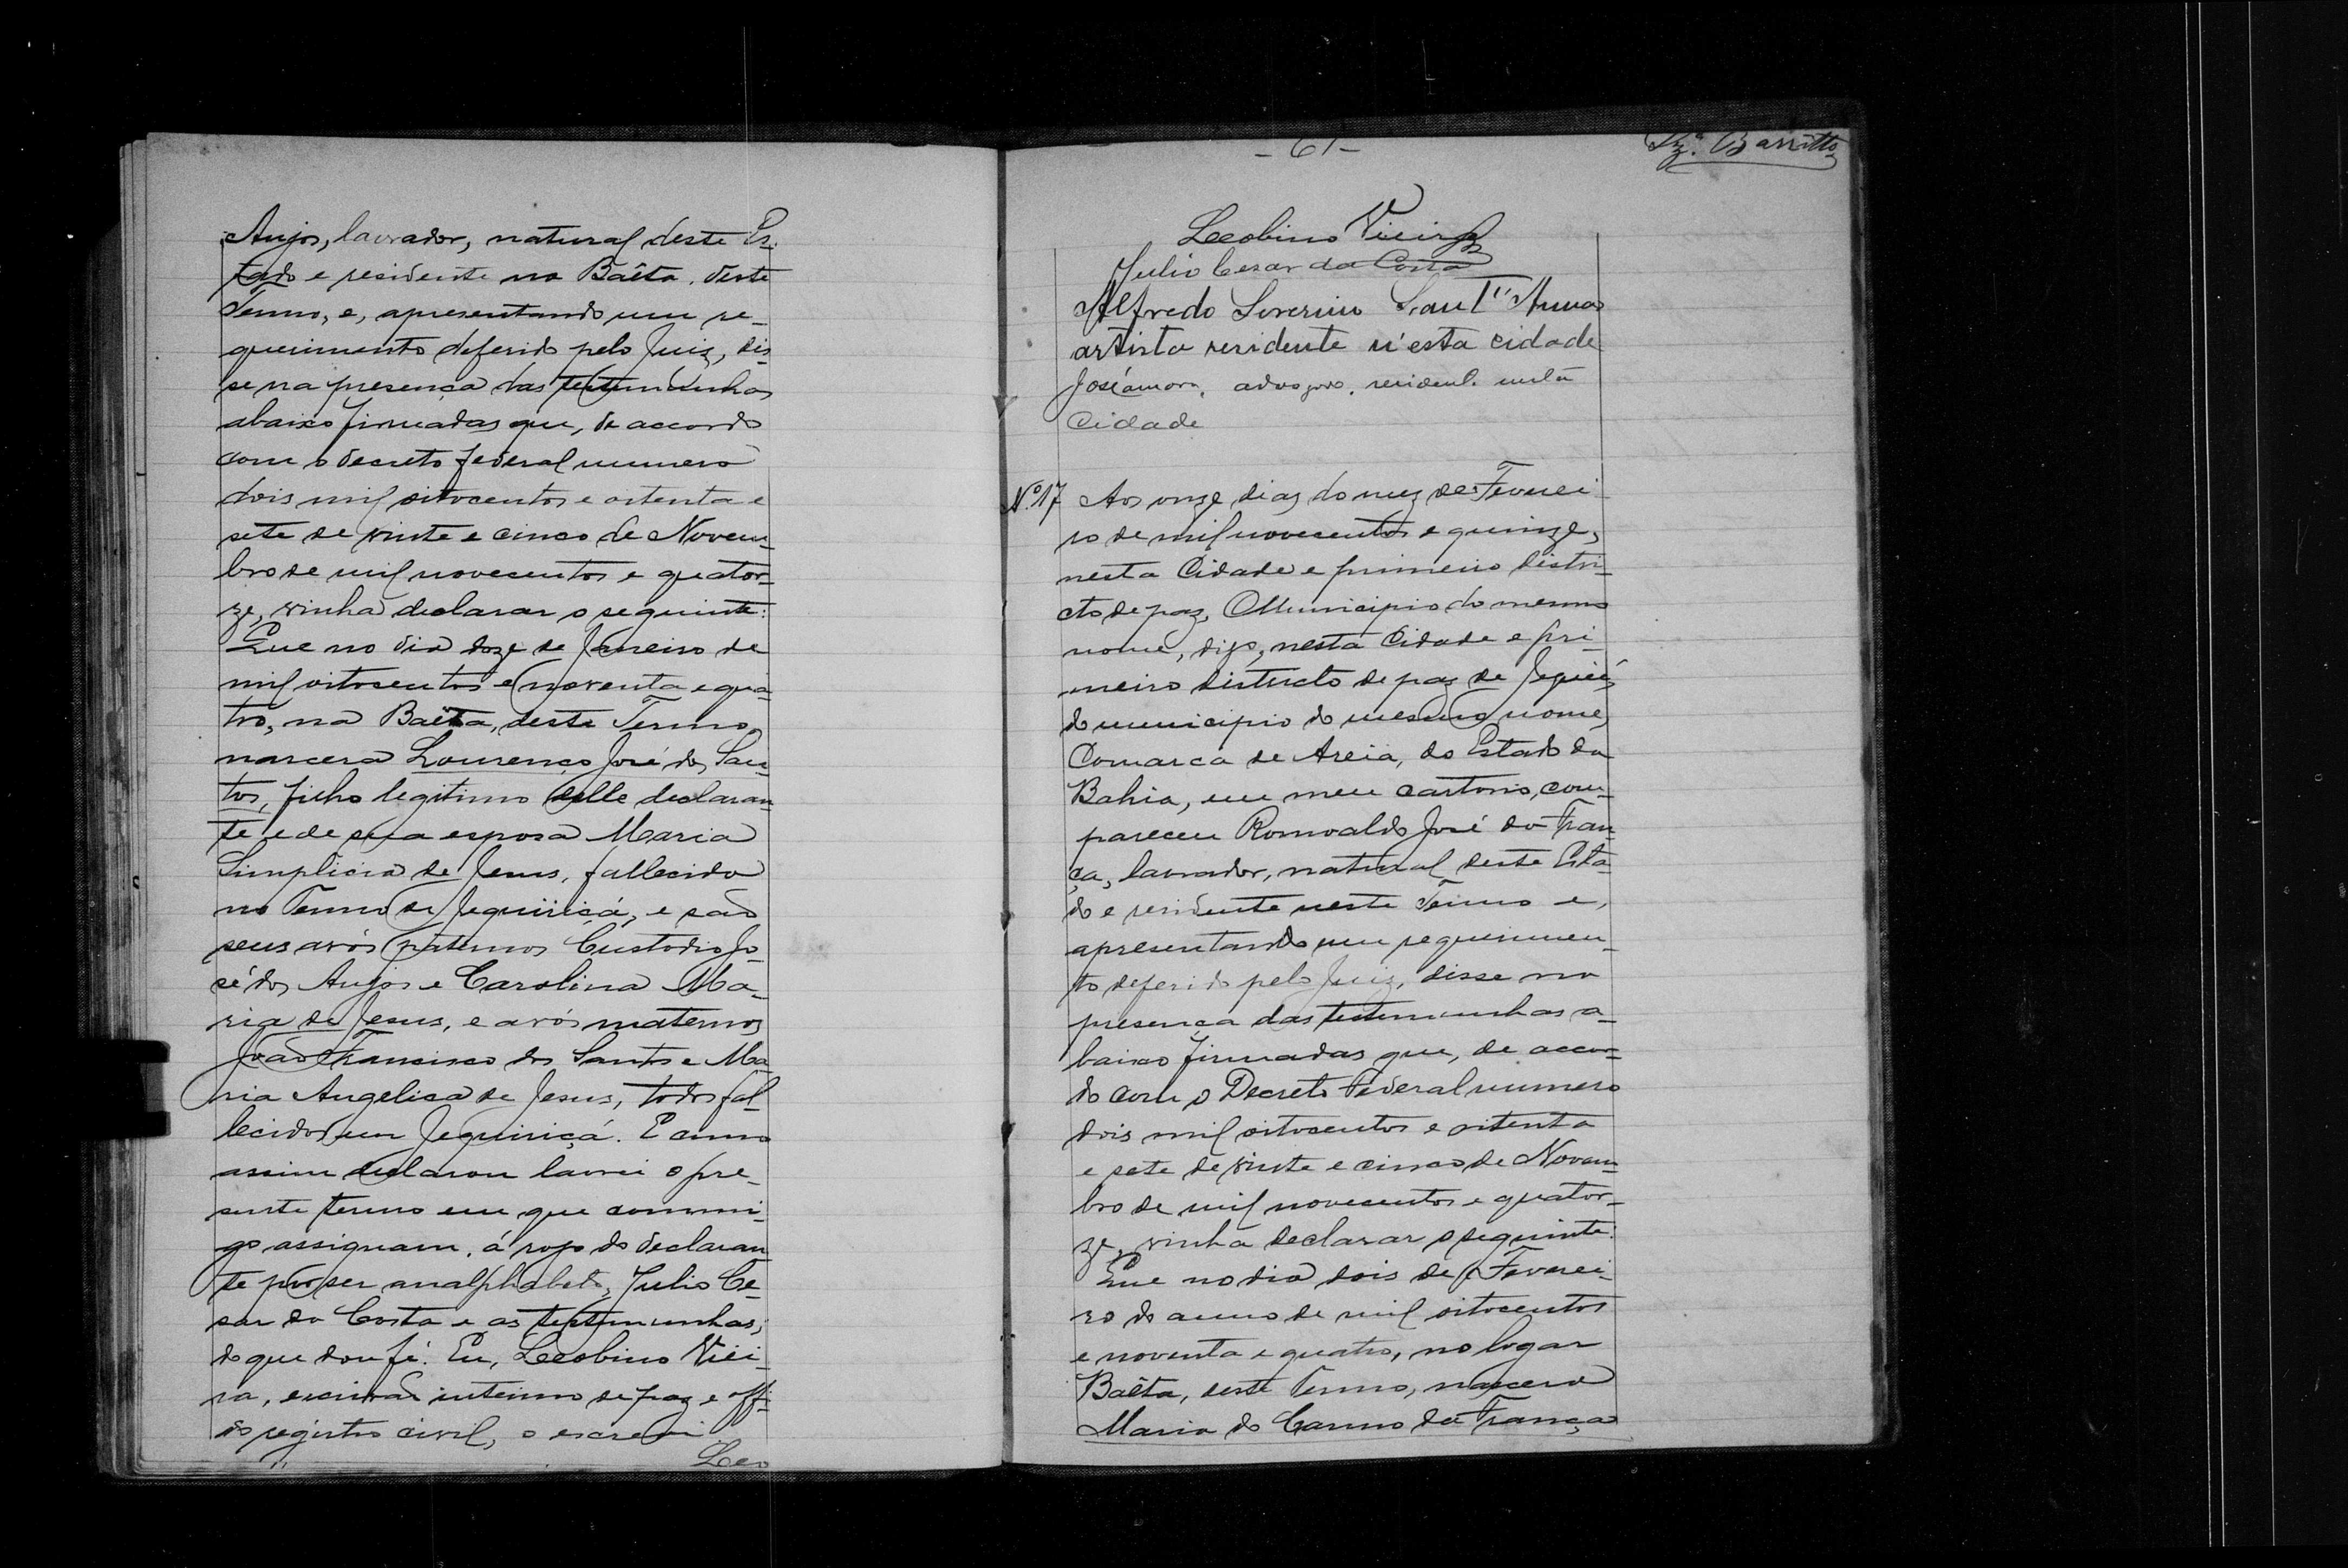 Anjos, lavrador, natural deste Es-
tado e residente na Baêta, deste
Termo, e, apresentando um re-
querimento deferido pelo Juiz, dis-
se na presença das testemunhas
abaixo firmadas que, de accordo
com o decreto federal numero
dois mil oitocentos e oitenta e
sete de vinte e cinco de Novem-
bro de mil novecentos e quator-
ze, vinha declarar o seguinte:
Que no dia doze de Janeiro de
mil oitocentos e noventa e qua-
tro, na Baêta, deste Termo,
nascera Lourenço José dos San-
tos, filho legitimo delle declaran-
te e de sua esposa Maria
Simplicia de Jesus, fallecida
no Termo de Jequiriçá, e são
seus avós paternos Custodio Jo-
sé dos Anjos e Carolina Ma-
ria de Jesus, e avós maternos
João Francisco dos Santos e Ma-
ria Angelica de Jesus, todos fal-
lecidos em Jequiriçá. E como
assim declarou lavrei o pre-
sente termo em que commi-
go assignam, á rogo do declaran-
te por ser analphabeto, Julio Ce-
sar da Costa e as testemunhas,
do que dou fé. Eu, Leobino Viei-
ra, escrivão interino de paz e off.
do registro civil, o escrevi
Leo
- 61 -
Barretto
Leobino Vieira
Julio Cesar da Costa
Alfredo Severino Sant'Anna
artista residente n'esta cidade
José advogado, resident. nesta
Cidade
Nº 17 Aos onze dias do mez de Feverei-
ro de mil novecentos e quinze,
nesta Cidade e primeiro distri-
cto de paz, Municipio do mesmo
nome, digo, nesta Cidade e pri-
meiro districto de paz de Jequié,
do municipio do mesmo nome,
Comarca de Areia, do Estado da
Bahia, em meu cartorio, com-
pareceu Romualdo José da Fran-
ça, lavrador, natural deste Esta-
do e residente neste Termo e,
apresentando um requerimen-
to deferido pelo Juiz, disse na
presença das testemunhas a-
baixo firmadas que, de accor-
do com o Decreto Federal numero
dois mil oitocentos e oitenta
e sete de vinte e cinco de Novem-
bro de mil novecentos e quator-
ze, vinha declarar o seguinte:
Que no dia dois de Feverei-
ro do anno de mil oitocentos
e noventa e quatro, no logar
Baêta, deste Termo, nascera
Maria do Carmo da França